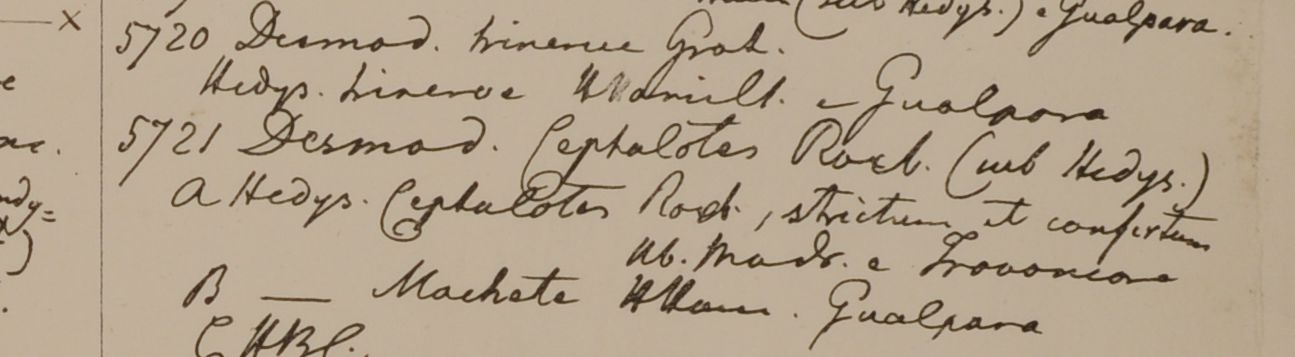 (sub Hedys.) e Gualpara.
5720 Desmod. trinerve Grah.
Hedys. trinerve HHamilt. e Gualpara
5721 Desmod. Cephalotes Roxb. (sub Hedys.)
A Hedys. Cephalotes Roxb., strictum et confertum
Hb. Madr. e Travancore
B — Machete HHam. Gualpara
C HBC.